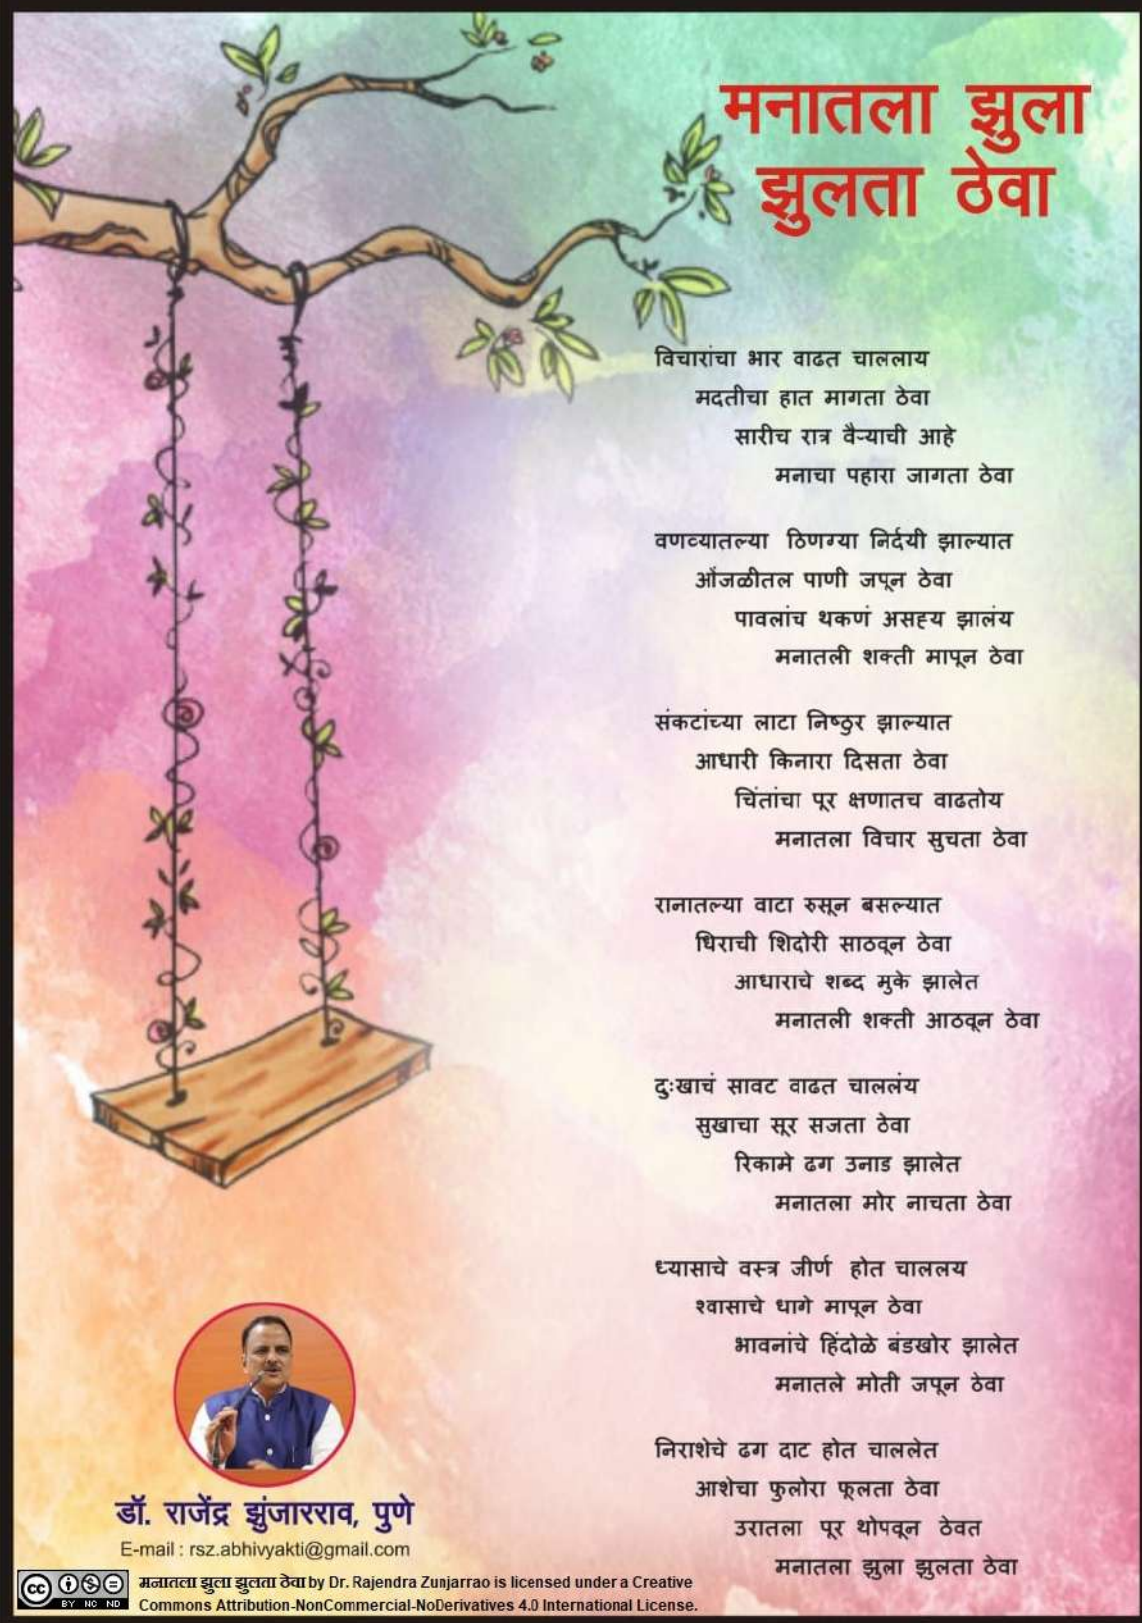 मनातला झुला
झुलता ठेवा
विचारांचा भार वाढत चाललाय
मदतीचा हात मागता ठेवा
सारीच रात्र वैऱ्याची आहे
मनाचा पहारा जागता ठेवा
वणव्यातल्या ठिणग्या निर्दयी झाल्यात
ओंजळीतल पाणी जपून ठेवा
पावलांच थकणं असह्य झालंय
मनातली शक्ती मापून ठेवा
संकटांच्या लाटा निष्ठुर झाल्यात
आधारी किनारा दिसता ठेवा
चिंतांचा पूर क्षणातच वाढतोय
मनातला विचार सुचता ठेवा
रानातल्या वाटा रुसून बसल्यात
धिराची शिदोरी साठवून ठेवा
आधाराचे शब्द मुके झालेत
मनातली शक्ती आठवून ठेवा
दुःखाचं सावट वाढत चाललंय
सुखाचा सूर सजता ठेवा
रिकामे ढग उनाड झालेत
मनातला मोर नाचता ठेवा
ध्यासाचे वस्त्र जीर्ण होत चाललय
श्वासाचे धागे मापून ठेवा
भावनांचे हिंदोळे बंडखोर झालेत
मनातले मोती जपून ठेवा
निराशेचे ढग दाट होत चाललेत
आशेचा फुलोरा फूलता ठेवा
उरातला पूर थोपवून ठेवत
मनातला झुला झुलता ठेवा
डॉ. राजेंद्र झुंजारराव, पुणे
E-mail : rsz.abhivyakti@gmail.com
cc BY NC ND
मनातला झुला झुलता ठेवा by Dr. Rajendra Zunjarrao is licensed under a Creative
Commons Attribution-NonCommercial-NoDerivatives 4.0 International License.